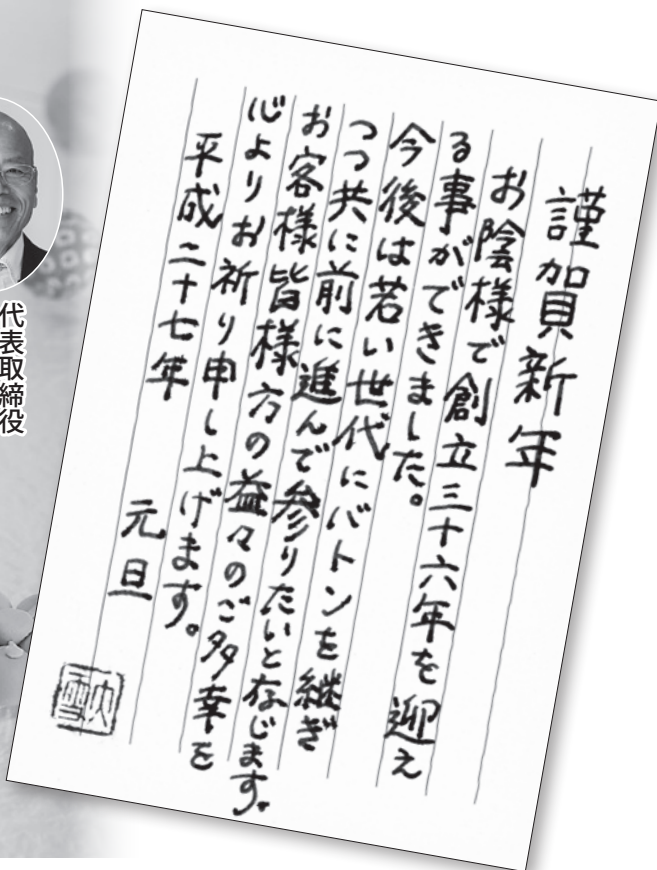 謹賀新年
お陰様で創立三十六年を迎え
る事ができました。
今後は若い世代にバトンを継ぎ
つつ共に前に進んで参りたいと存じます。
お客様皆様方の益々のご多幸を
心よりお祈り申し上げます。
平成二十七年
元旦
代表取締役